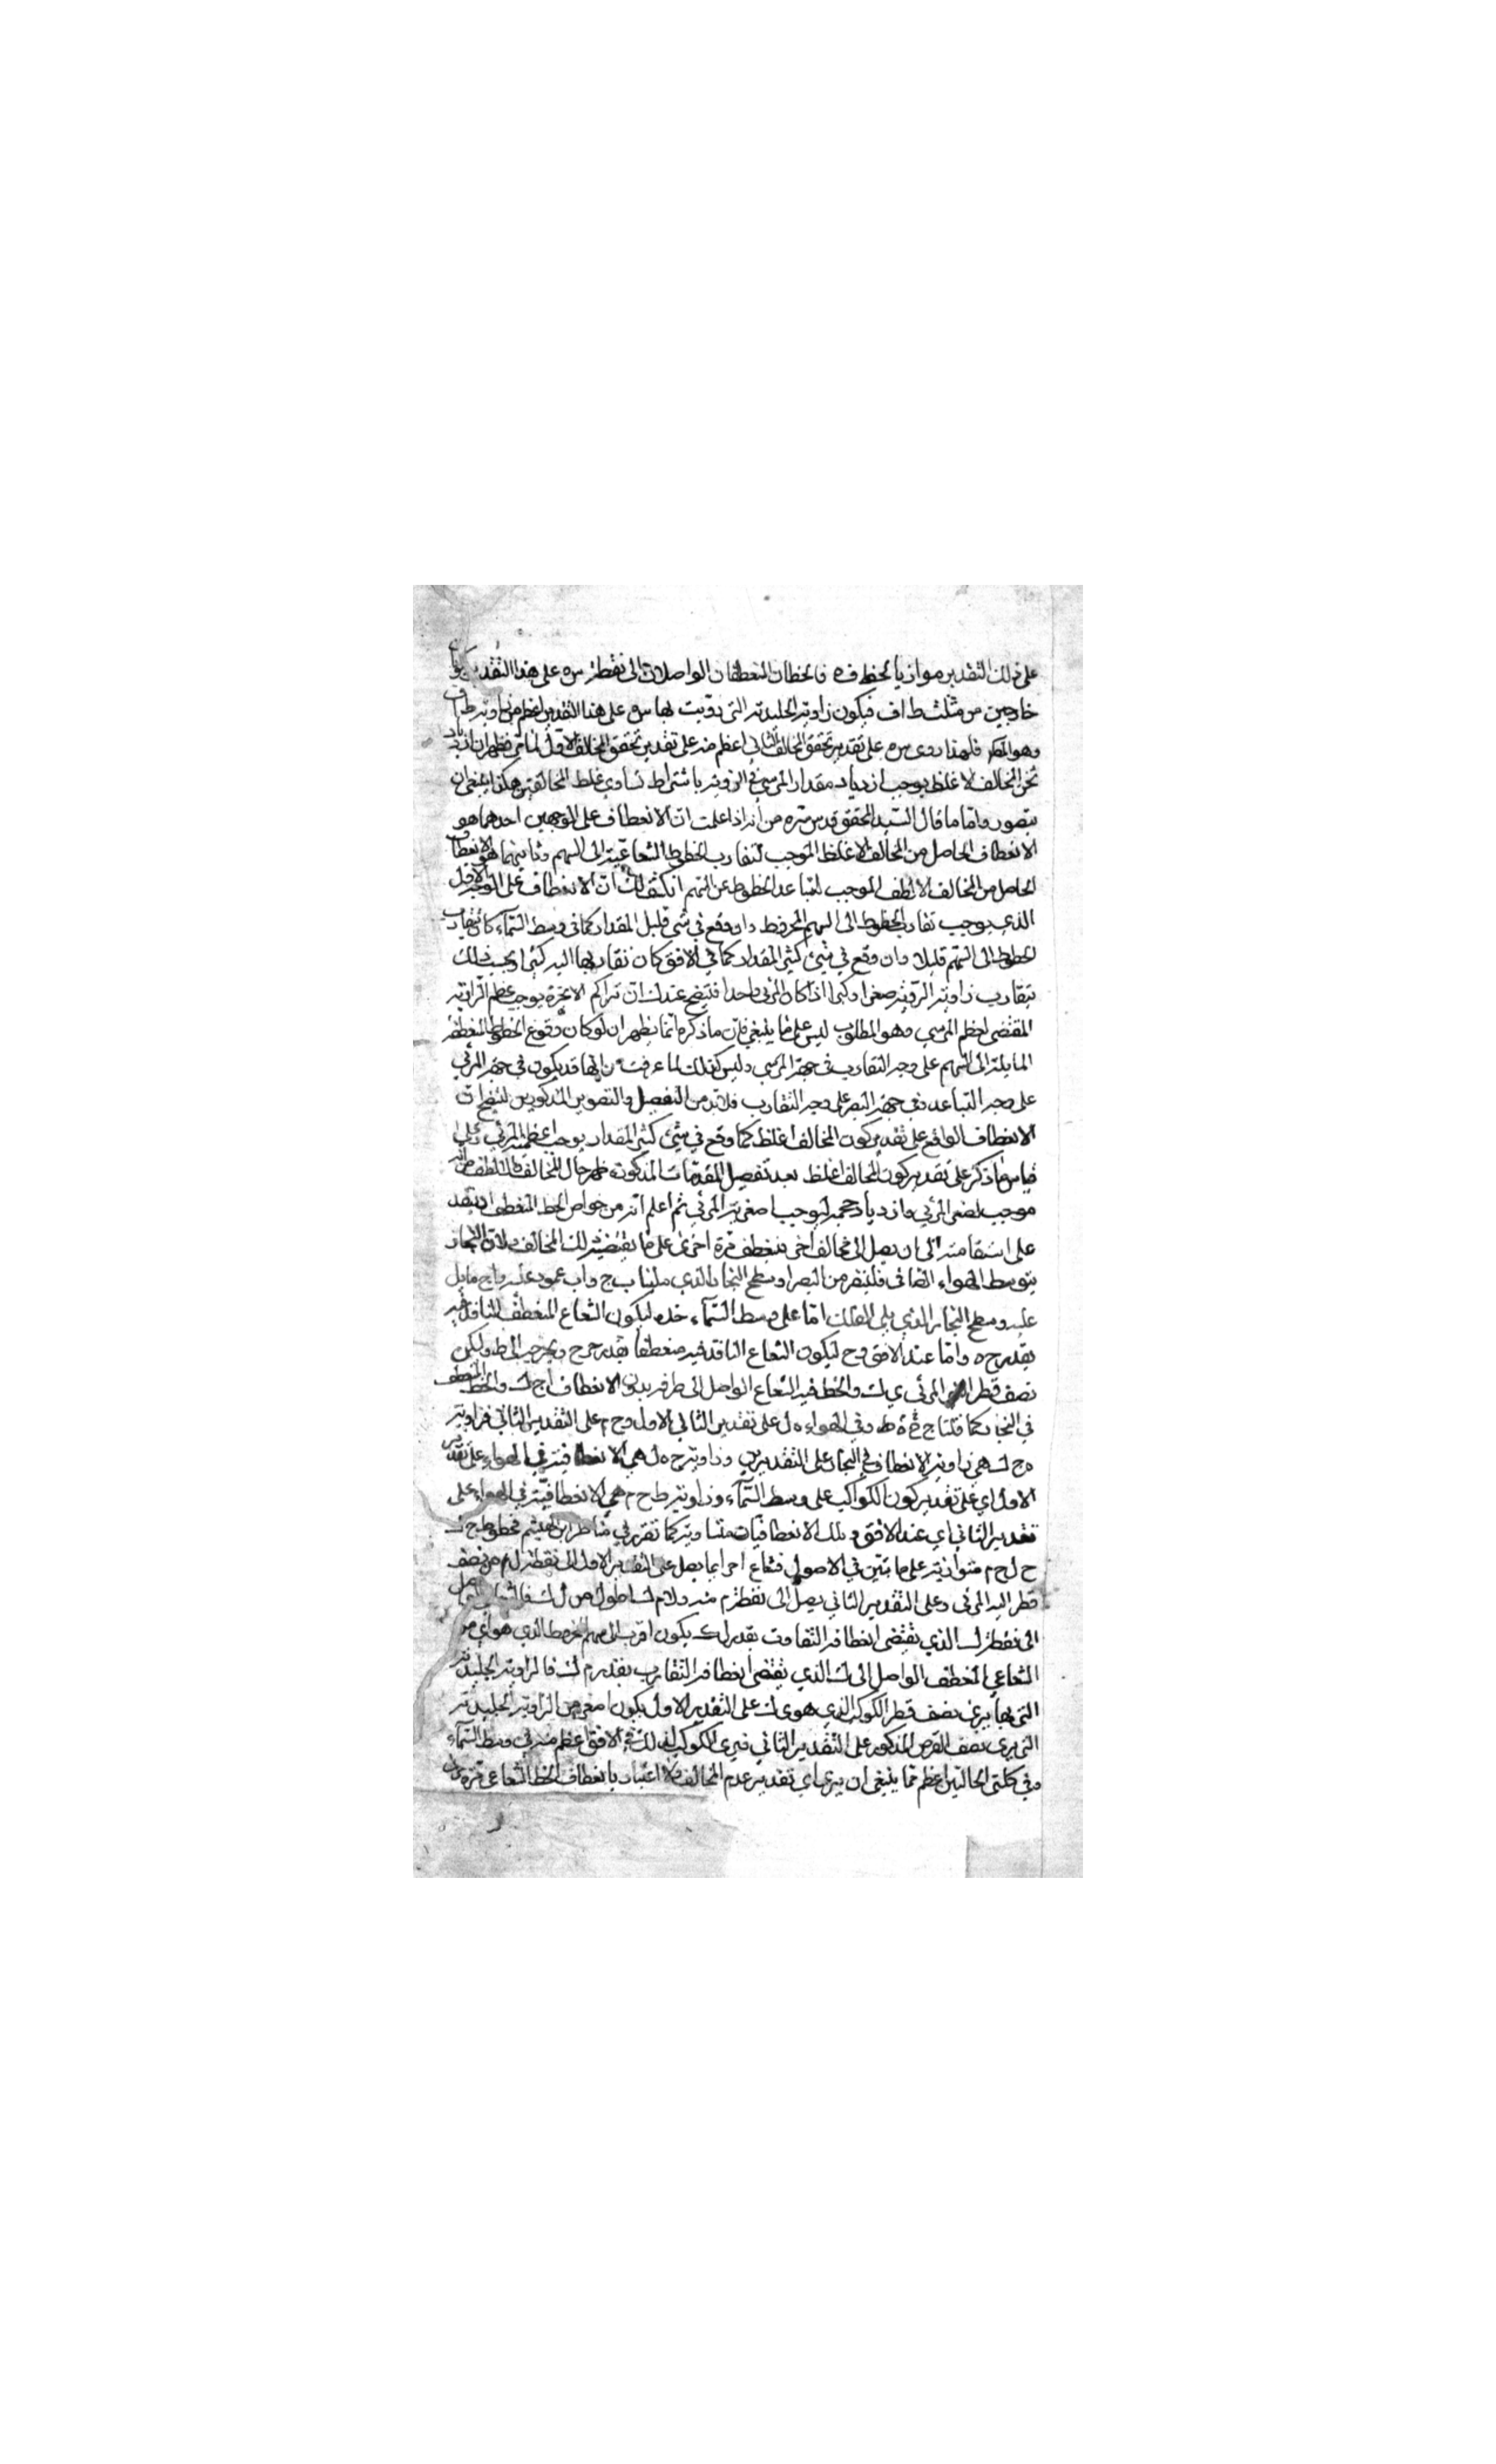 على ذلك التقدير موازيا لخط ف ه فالخطان المنعطفان الواصلان الى نقطتي س ه على هذا التقدير
خارجين من مثلث ط اف فيكون زاويته الجليدية التي رؤيت بها س ه على هذا التقدير اعظم من زاوية ط ا ف
وهو المط فلهذا روى س ه على تقدير تحقق المخالف الثاني اعظم منه على تقدير تحقق المخالف الاول لما مر فظهر ان ازدياد
ثخن المخالف الاغلظ يوجب ازدياد مقدار المرئي في الرؤية باشتراط تساوي غلظ المخالفين هكذا ينبغي ان
يتصور واما ما قال السيد المحقق قدس سره من انه اذا علمت ان الانعطاف على الوجهين احدهما هو
الانعطاف الحاصل من المخالف الاغلظ الموجب لتقارب الخطوط الشعاعية الى السهم وثانيهما هو الانعطاف
الحاصل من المخالف الالطف الموجب لتباعد الخطوط عن السهم انكشف لك ان الانعطاف على الوجه الاول
الذي يوجب تقارب الخطوط الى السهم المخروط ان وقع في شئ قليل المقدار كما في وسط السماء كان تقارب
الخطوط الى السهم قليلا وان وقع في شئ كثير المقدار كما في الافق كان تقاربها اليه كثيرا وبحسب ذلك
يتقارب زاوية الرؤية صغرا وكبرا اذا كان المرئي واحدا فيتضح عندك ان تراكم الابخرة يوجب عظم الزاوية
المقتضى لعظم المرئي وهو المطلوب ليس على ما ينبغي فان ما ذكره انما يظهر ان لو كان وقوع الخطوط المنعطفة
المايلة الى السهم على وجه التقارب في جهة المرئي وليس كذلك لما عرفت من انها قد يكون في جهة المرئي
على وجه التباعد وفي جهة البصر على وجه التقارب فلا بد من التفصيل والتصوير المذكورين ليتضح ان
الانعطاف الواقع على تقدير كون المخالف اغلظ كما وقع في شئ كثير المقدار يوجب اعظمية المرئي وعلى
قياس ما ذكر على تقدير كون المخالف اغلظ بعد تفصيل المقدمات المذكورة ظهر حال المخالف الالطف من انه
موجب لصغر المرئي وازدياد حجمه ليوجب اصغرية المرئي ثم اعلم انه من خواص الخط المنعطف ان ينفذ
على استقامته الى ان يصل الى مخالف اخر فينعطف مرة اخرى على ما يقتضيه ذلك المخالف ولان البخار
يتوسط الهواء الصافى فلنفرض البصر ا وسطح البخار الذي يلينا ب ج واب عمود عليه واج مايل
عليه وسطح البخار الذي يلي الفلك اما على وسط السماء خ ه ليكون الشعاع المنعطف النافذ فيه
بقدر ج ه واما عند الافق و ح ليكون الشعاع النافذ فيه منعطفا بقدر ج ح ويخرج الى ط وليكن
نصف قطر المرئي ي ك والخط فيه الشعاع الواصل الى طرفه بدون الانعطاف اج ك والخط المنعطف
في البخار كما قلنا ج ح ه ط وفي الهواء ه ل على تقدير الثاني الاول و ح م على التقدير الثاني فزاوية
ه ج ك هي زاوية الانعطاف في البخار على التقديرين وزاوية ح ه ل هي الانعطافية في الهواء على تقدير
الاول اي على تقدير كون الكواكب على وسط السماء وزاوية ط ح م هي الانعطافية في الهواء على
تقدير الثاني اي عند الافق وتلك الانعطافيات متساوية كما تقرر في مناظر ابن الهيثم فخطوط ج ك
ح ل ح م متوازية على ما بين في الاصول فشعاع اج انما يصل على التقدير الاول الى نقطة ل من نصف
قطر المرئي وعلى التقدير الثاني يصل الى نقطة م منه ولان م ك اطول من ل ك فالشعاع الواصل
الى نقطة ل الذي يقتضى انعطافه التفاوت بقدر ل ك يكون اقرب الى سهم المخروط الذي هو اي من
الشعاعي المنعطف الواصل الى ك الذي يقتضى انعطافه التقارب بقدر م ك فالزاوية الجليدية
التي بها يرى نصف قطر الكوكب الذي هو ي ك على التقدير الاول يكون اصغر من الزاوية الجليدية
التي يرى نصف القرص المذكور على التقدير الثاني فيرى الكوكب لذلك في الافق اعظم منه في وسط السماء
وفي كلتى الحالتين اعظم مما ينبغي ان يرى اي تقدير عدم المخالف ولا اعتبار بانعطاف الخط الشعاعى مرة